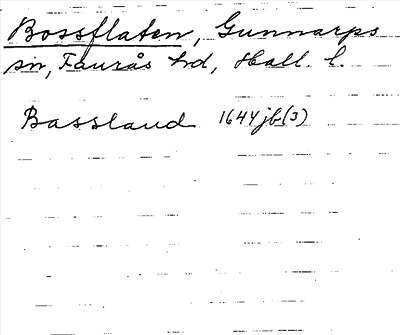 Bossflaten, Gunnarps
sn, Faurås hd, Hall. l.
Bassland 1644 jb(3)